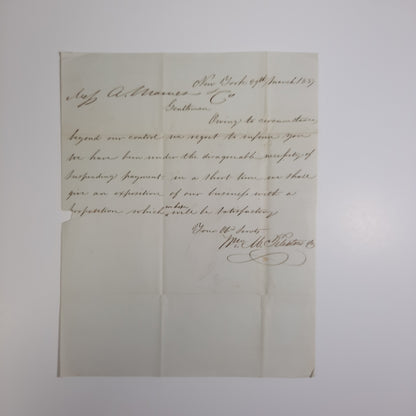 New York 29th March 1837
Messrs A. & Co
Gentlemen
Owing to circumstances
beyond our control we regret to inform you
we have been under the disagreeable necessity of
suspending payment. in a short time we shall
give an exposition of our business with a
proposition which we hope will be satisfactory
Your Ob. Servts
Wm